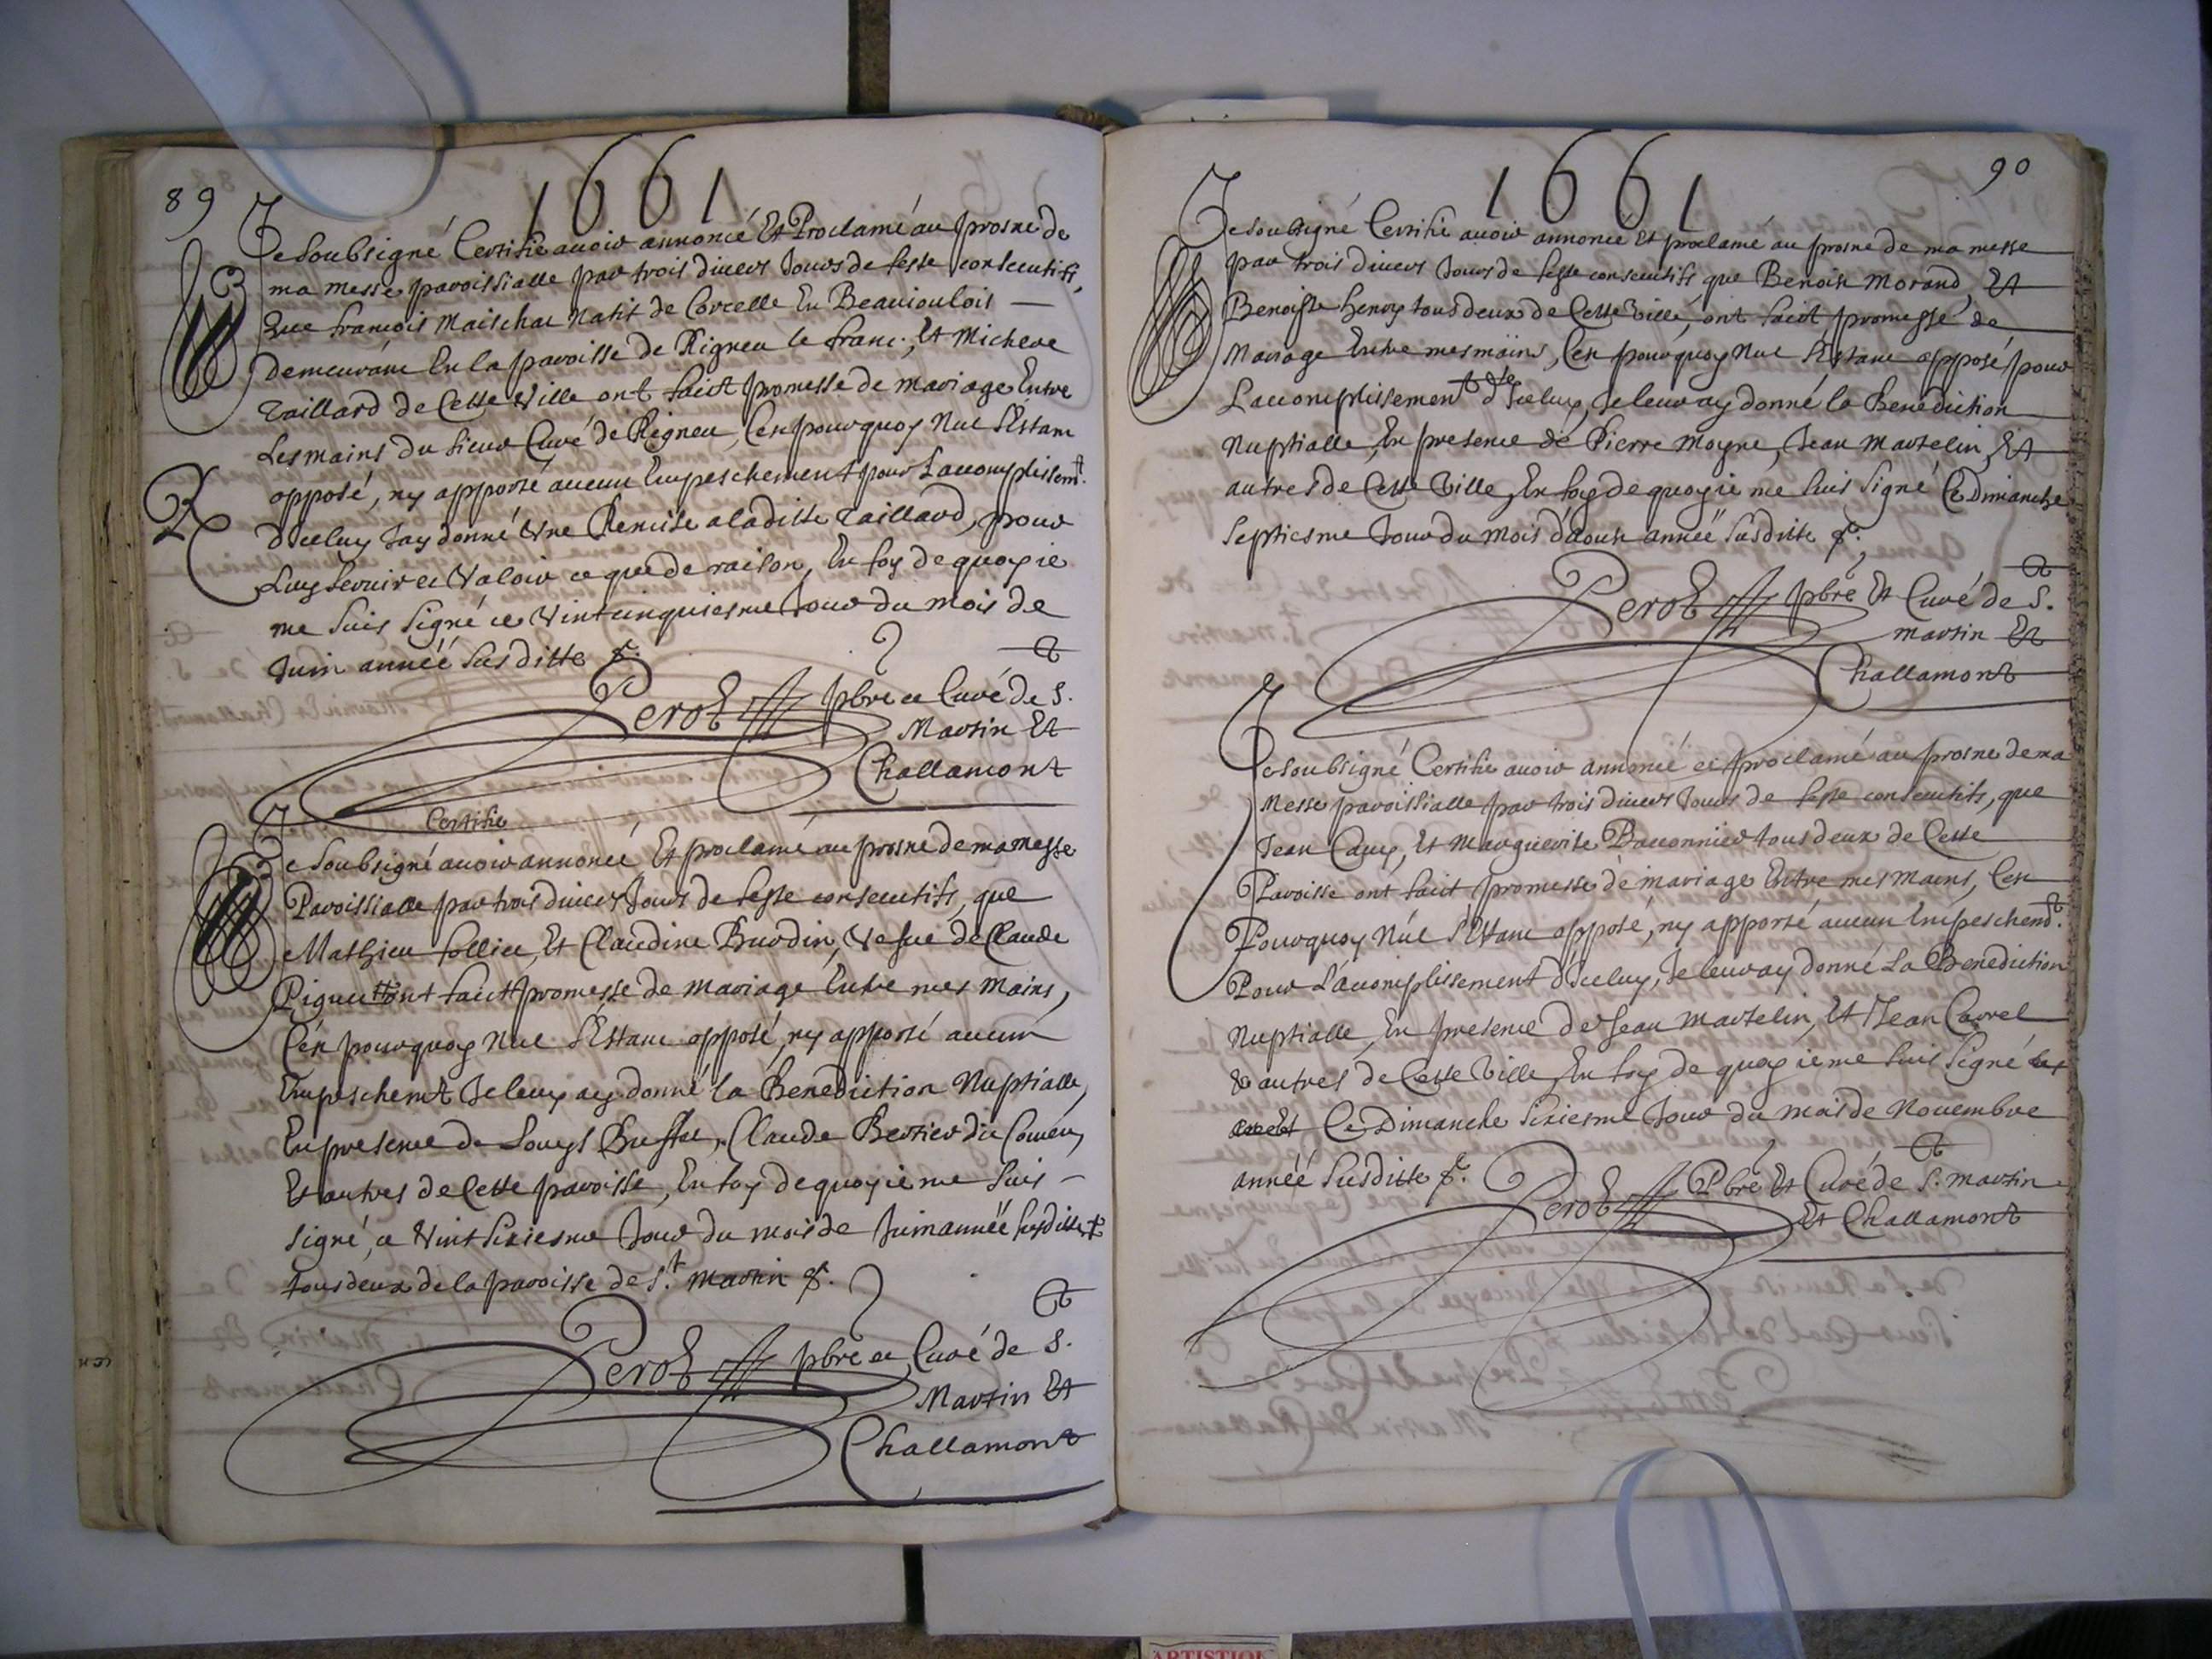 89
1661
Je Soubsigné Certifie avoir annoncé Et Proclamé au prosne de
ma messe paroissialle par trois divers Jours de feste consecutifs,
que françois Maischat Natif de Corcelle En Beauioulois
Demeurant En la paroisse de Rigneu le franc, Et Micheve
Taillard de Cette Ville ont faict promesse de mariage Entre
Les mains du Sieur Curé de Rigneu, C'en pourquoy Nul S'Estant
opposé, ny apporté aucun Empeschement pour L'accomplissemt.
D'iceluy Jay donné Une Remise a laditte Taillard, pour
Luy servir et Valoir ce que de raison, En foy de quoy ie
me suis Signé ce Vintcinquiesme Jour du mois de
Juin année Susditte &.
Perot pbre et Curé de S.
Martin Et
Challamont
Certifie
Je Soubsigné avoir annoncé Et proclamé au prosne de ma messe
Paroissialle par trois divers Jours de feste consecutifs, que
Mathieu follier, Et Claudine Burdin, Vefue de Claude
Piguet ont faict promesse de mariage Entre mes mains,
C'en pourquoy Nul S'Estant opposé, ny apporté aucun
Empeschemt Je leur ay donné la Benediction Nuptialle,
En presence de Louys Buffet, Claude Bertier dit
Et autres de Cette paroisse, En foy de quoy ie me suis
signé, ce Vint Sixiesme Jour du mois de Juin année susditte +
tous deux de la paroisse de St. Martin &.
Perot pbre et Curé de S.
Martin Et
Challamont
90
1661
Je soubsigné Certifie avoir annoncé Et proclamé au prosne de ma messe
par trois divers Jours de feste consecutifs que Benoist Morand, Et
Benoiste henry tous deux de Cette Ville, ont faict promesse de
Mariage Entre mes mains, C'en pourquoy Nul S'Estant opposé, pour
L'accomplissement d'Iceluy, Je leur ay donné la Benediction
Nuptialle, En presence de Pierre Moyne, Jean Martelin, Et
autres de Cette Ville, En foy de quoy ie me suis Signé Ce Dimanche
Septiesme Jour du Mois d'Aoust année Susditte &.
Perot pbre Et Curé de S.
Martin Et
Challamont
Je soubsigné Certifie avoir annoncé et proclamé au prosne de ma
Messe paroissialle par trois divers Jours de feste consecutifs, que
Jean Caup, Et Marguerite Baconnier tous deux de Cette
Paroisse ont faict promesse de mariage Entre mes mains, C'en
Pourquoy Nul S'Estant opposé, ny apporté aucun Empeschemt.
Pour L'accomplissement d'Iceluy, Je leur ay donné La Benediction
Nuptialle, En presence de Jean Martelin, Et Jean Carrel
& autres de Cette Ville, En foy de quoy ie me suis Signé
Ce Dimanche Sixiesme Jour du mois de Novembre
année Susditte &.
Perot Pbre Et Curé de S. Martin
Et Challamont
ARTISTION